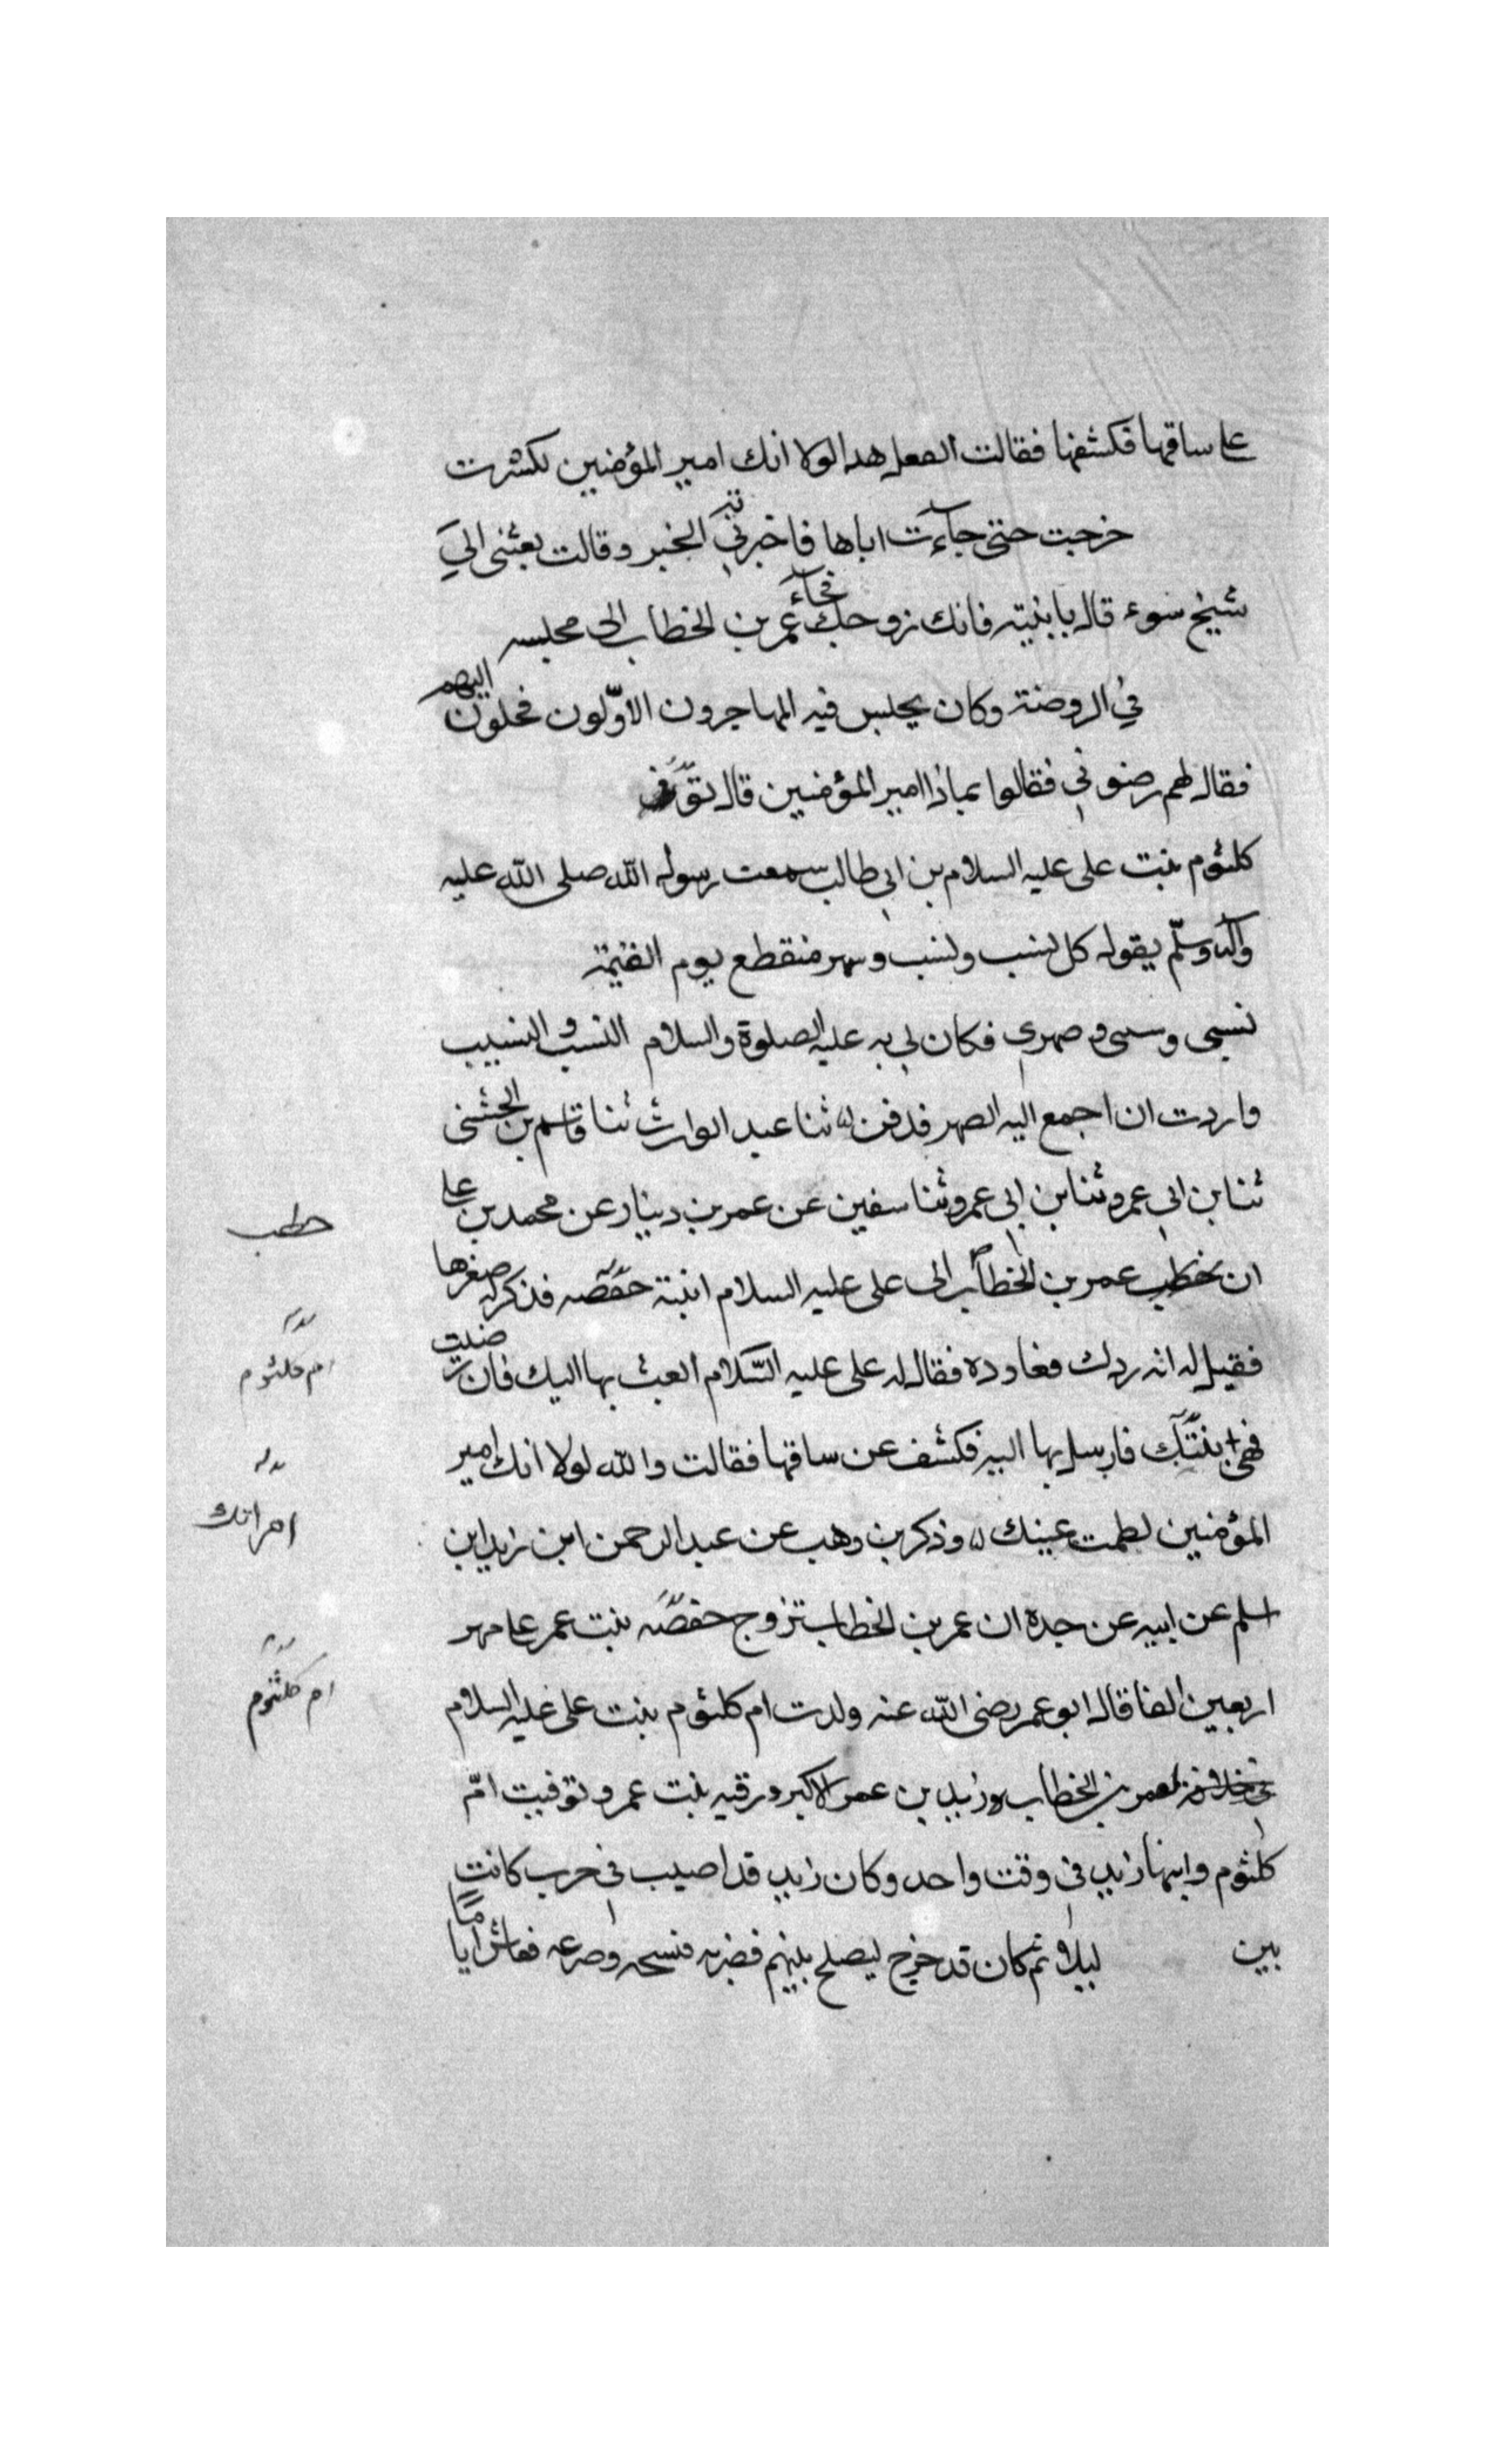 على ساقها فكشفها فقالت اتفعل هذا لولا انك امير المؤمنين لكسرت
خرجت حتى جاءت اباها فاخبرته الخبر وقالت بعثنى الى
شيخ سوء قال يا بنية فانك زوجك فجاء عمر بن الخطاب الى مجلسه
في الروضة وكان يجلس فيه المهاجرون الاوّلون اليهم
فقال لهم رضونى فقالوا بماذا امير المؤمنين قال
كلثوم بنت على عليه السلام بن ابى طالب سمعت رسول الله صلى الله عليه
وآله وسلّم يقول كل نسب ونسب وسهر منقطع يوم القيمة
نسبى وسببى وصهرى فكان لى به عليه الصلوة والسلام النسب والنسيب
واردت ان اجمع اليه الصهر ثنا عبد الوارث ثنا قاسم بن الخشنى
ثنا بن ابى عمرو ثنا بن ابى عمرو ثنا سفين عن عمر بن دينار عن محمد بن على
ان خطب عمر بن الخطاب الى على عليه السلام ابنته حفصه فذكر له صغرها
فقيل له انه ردك فعاوده فقال له على عليه السّلام ابعث بها اليك فان رضيت
فهى بنتك فارسل بها اليه فكشف عن ساقها فقالت والله لولا انك امير
المؤمنين لطمت عينك وذكر بن وهب عن عبد الرحمن ابن زيد ابن
اسلم عن ابيه عن جده ان عمر بن الخطاب تزوج حفصه بنت عمر على مهر
اربعين الفا قال ابو عمر رضى الله عنه ولدت ام كلثوم بنت على عليه السلام
لعمر بن الخطاب وزيد بن عمر الاكبر ورقيه بنت عمر وتوفيت امّ
كلثوم وابنها زيد فى وقت واحد وكان زيد قد اصيب فى حرب كانت
بين ليلا ثم كان قد خرج ليصلح بينهم فضربه فشجه وصرعه فعاش اياما
خطب
ام كلثوم
امراتك
ام كلثوم